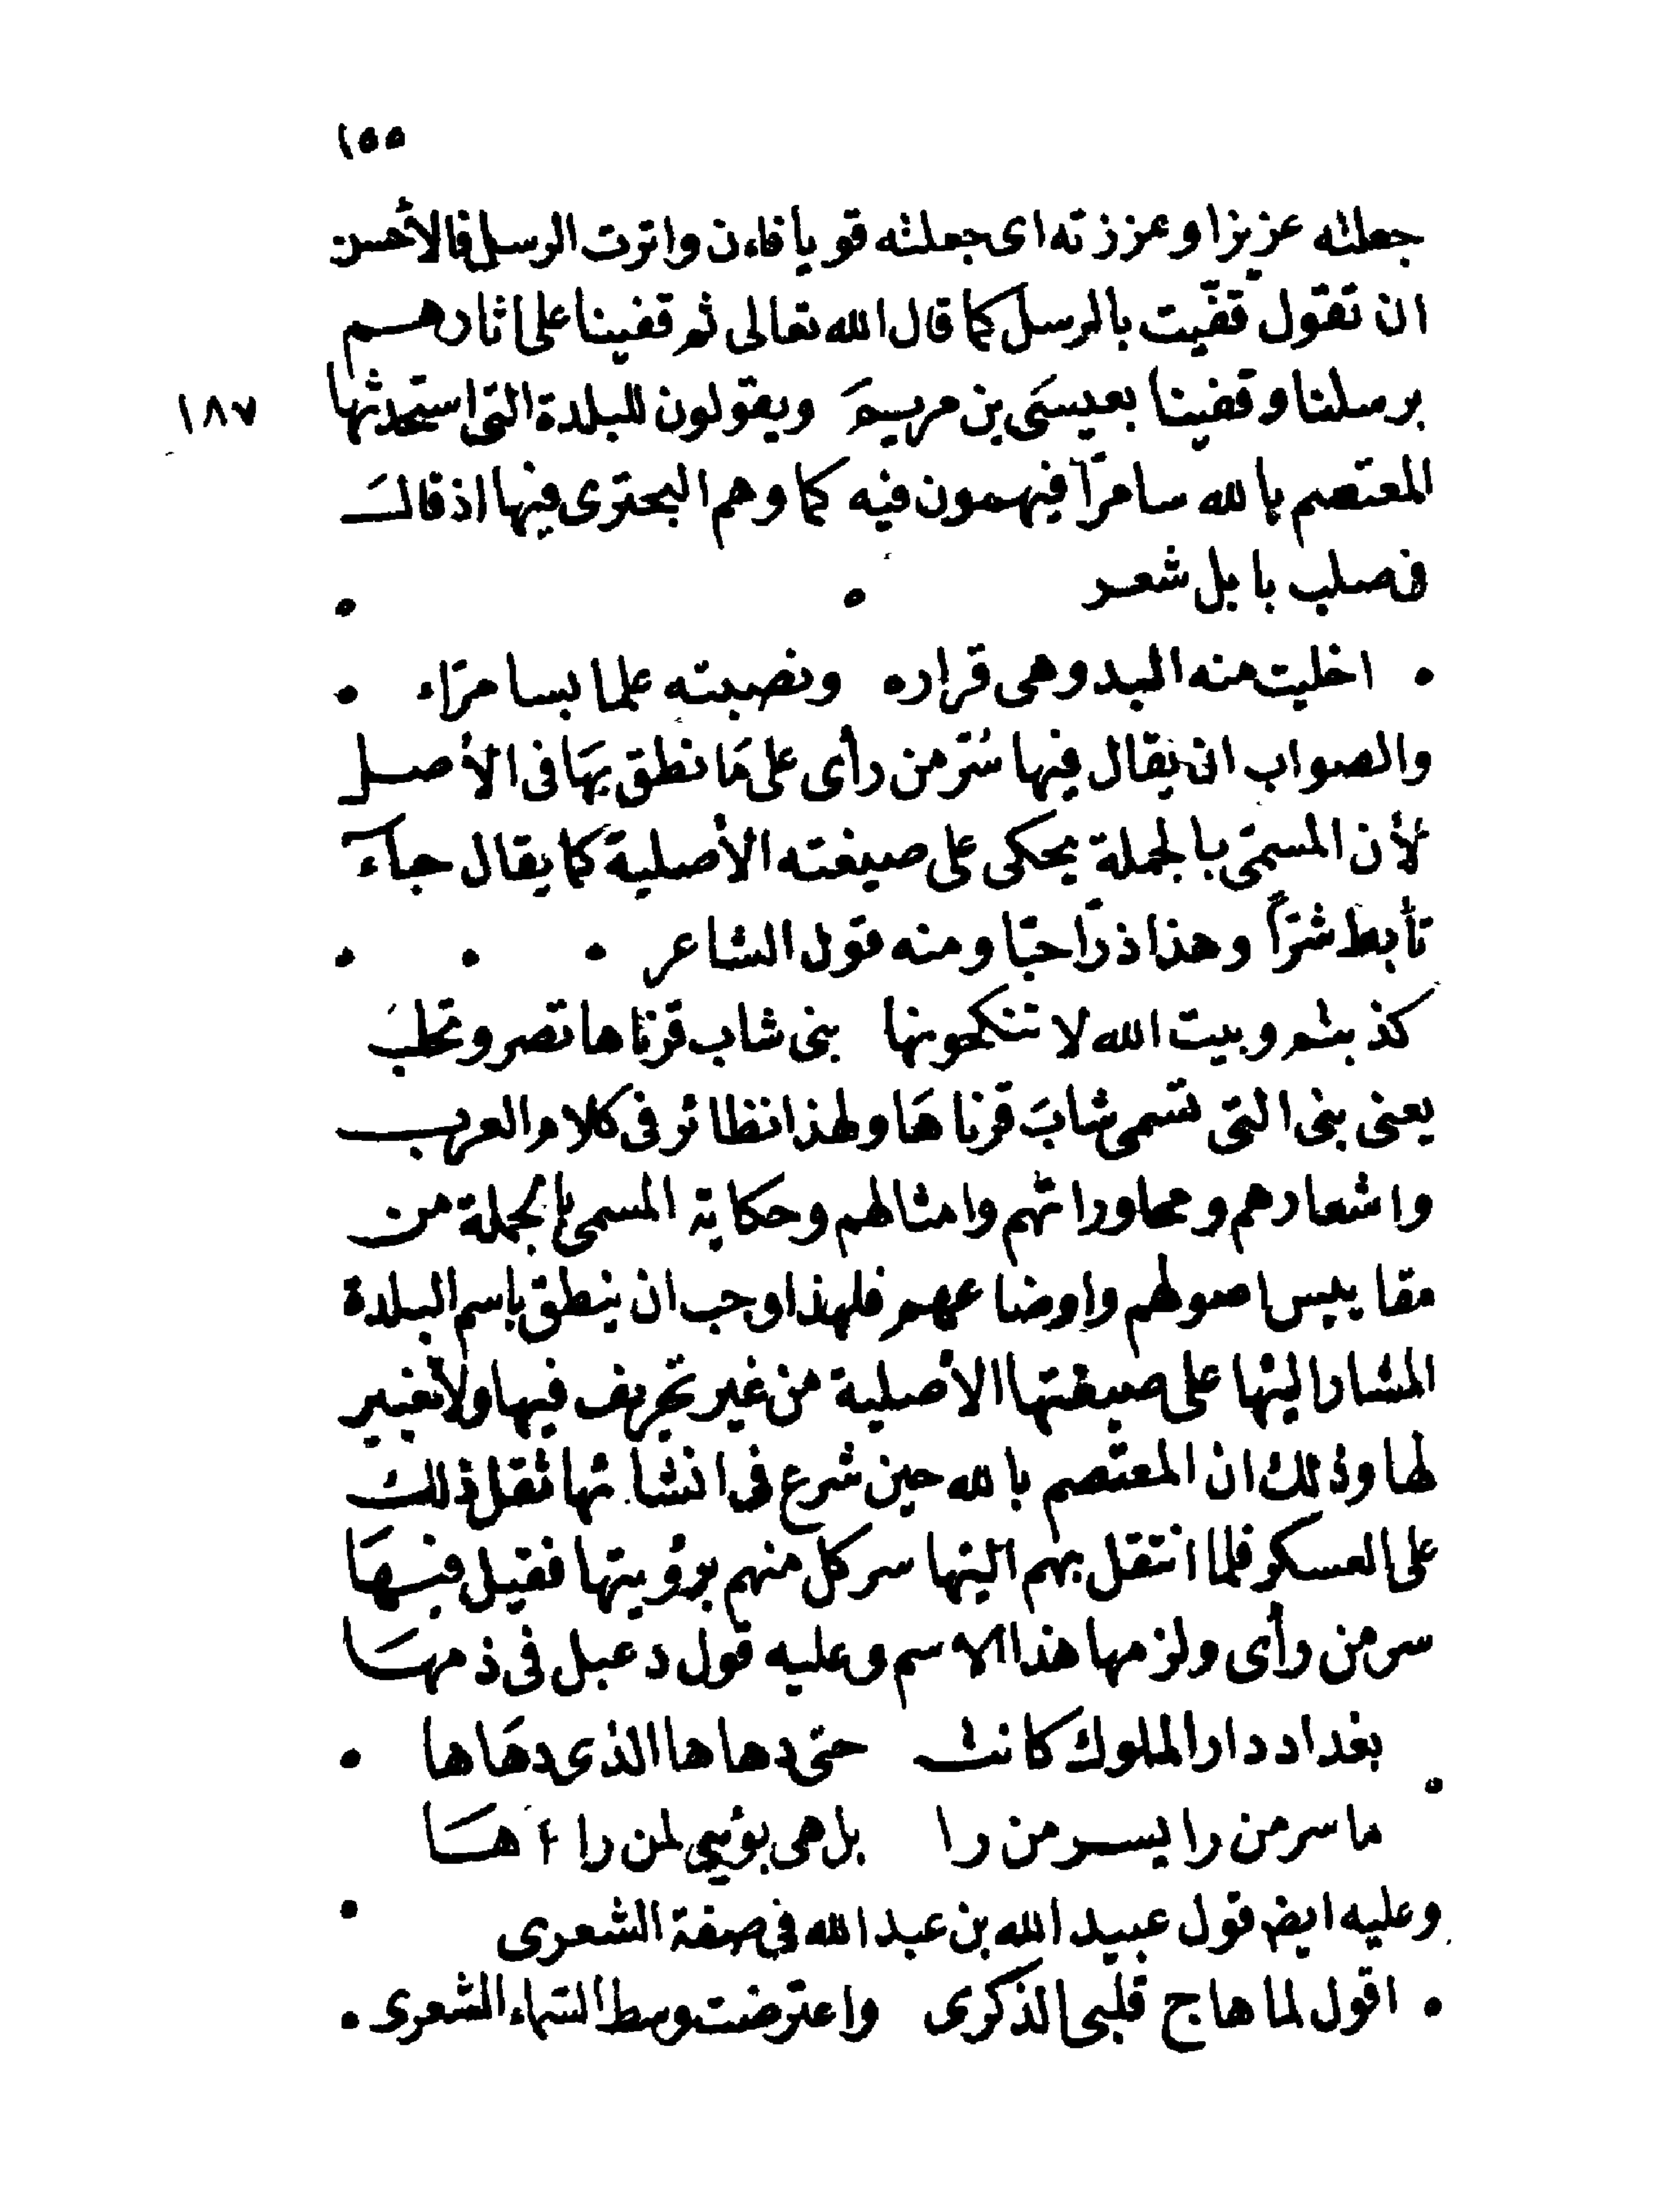 ١٥٥
جعلته عزيزا وعززته اى جعلته قويا فان واترت الرسل فالأحسن
ان تقول قفّيت بالرسل كما قال الله تعالى ثم قفينا على اثارهم
برسلنا وقفينا بعيسَى بن مريمَ ويقولون للبلدة التى استحدثها
١٨٧
المعتصم بالله سامرّا فيهمون فيه كما وهم البحترى فيها اذ قال
فى صلب بابل شعر
اخليت منه البد وهى قراره ونصبته علما بسامرّاء
والصواب ان يقال فيها سُرّ من رأى على مَا نطق بهَا فى الأصل
لأن المسمّى بالجملة يحكى على صيغته الأصلية كما يقال جاءَ
تأبط شرّاً وهذا ذرّا حبّا ومنه قول الشاعر
كذبتم وبيت الله لا تنكحونها بنى شاب قرناها تصر وتحلبَ
يعنى بنى التى تسمى شابَ قرناهَا ولهذا نظائر فى كلام العرب
واشعارهم ومحاوراتهم وامثالهم وحكاية المسمى بالجملة من
مقاييس اصولهم واوضاعهم فلهذا وجب ان ينطق باسم البلدة
المشار اليها على صيغتها الأصلية من غير تحريف فيها ولا تغيير
لها وذلك ان المعتصم بالله حين شرع فى انشائها ثقل ذلك
على العسكر فلما انتقل بهم اليها سر كل منهم برؤيتها فقيل فيهَا
سر من رأى ولزمها هذا الاسم وعليه قول دعبل فى ذمهَا
بغداد دار الملوك كانت حتى دهاها الذى دهَاها
ما سر من را بسر من را بل هى بؤسى لمن راءهَا
وعليه ايض قول عبيد الله بن عبد الله فى صفة الشعرى
اقول لما هاج قلبى الذكرى واعترضت وسط السّماء الشعرى